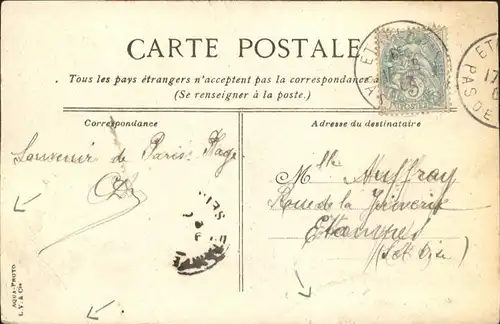 CARTE POSTALE
Tous les pays étrangers n'acceptent pas la correspondance à
(Se renseigner à la poste.)
Correspondance
Adresse du destinataire
Souvenir de Paris-Plage
Mlle Auffray
Rue de la
Etampes
(S et Oise)
ET
PAS DE
ET
17
PAS DE
AQUA-PHOTO
L. V. & Cie